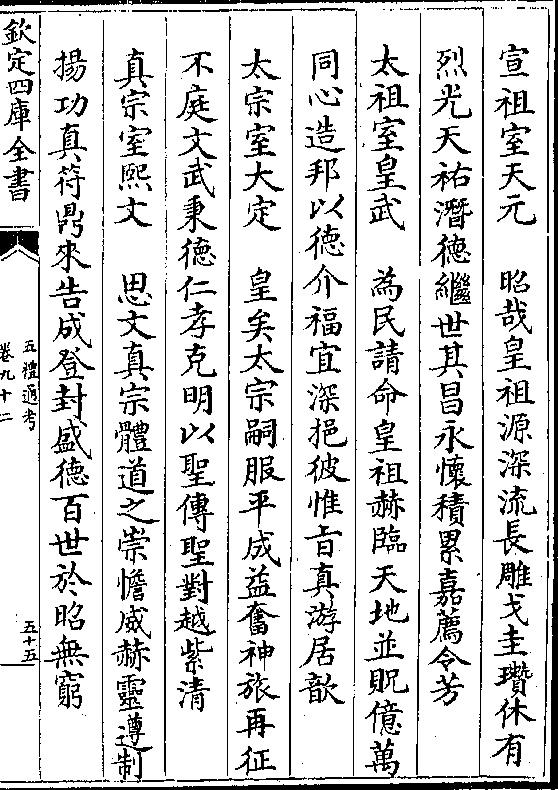 宣祖室天元　昭哉皇祖源深流長雕戈圭瓚休有
烈光天祐濳德繼世其昌永懷積累嘉薦令芳
太祖室皇武　為民請命皇祖赫臨天地並貺億萬
同心造邦以德介福宜深挹彼惟旨真游居歆
太宗室大定　皇矣太宗嗣服平成益奮神旅再征
不庭文武秉德仁孝克明以聖傳聖對越紫清
真宗室熙文　思文真宗體道之崇憺威赫靈遵制
揚功真符鼎來告成登封盛德百世於昭無窮
欽定四庫全書
五禮通考
卷九十二
五十五